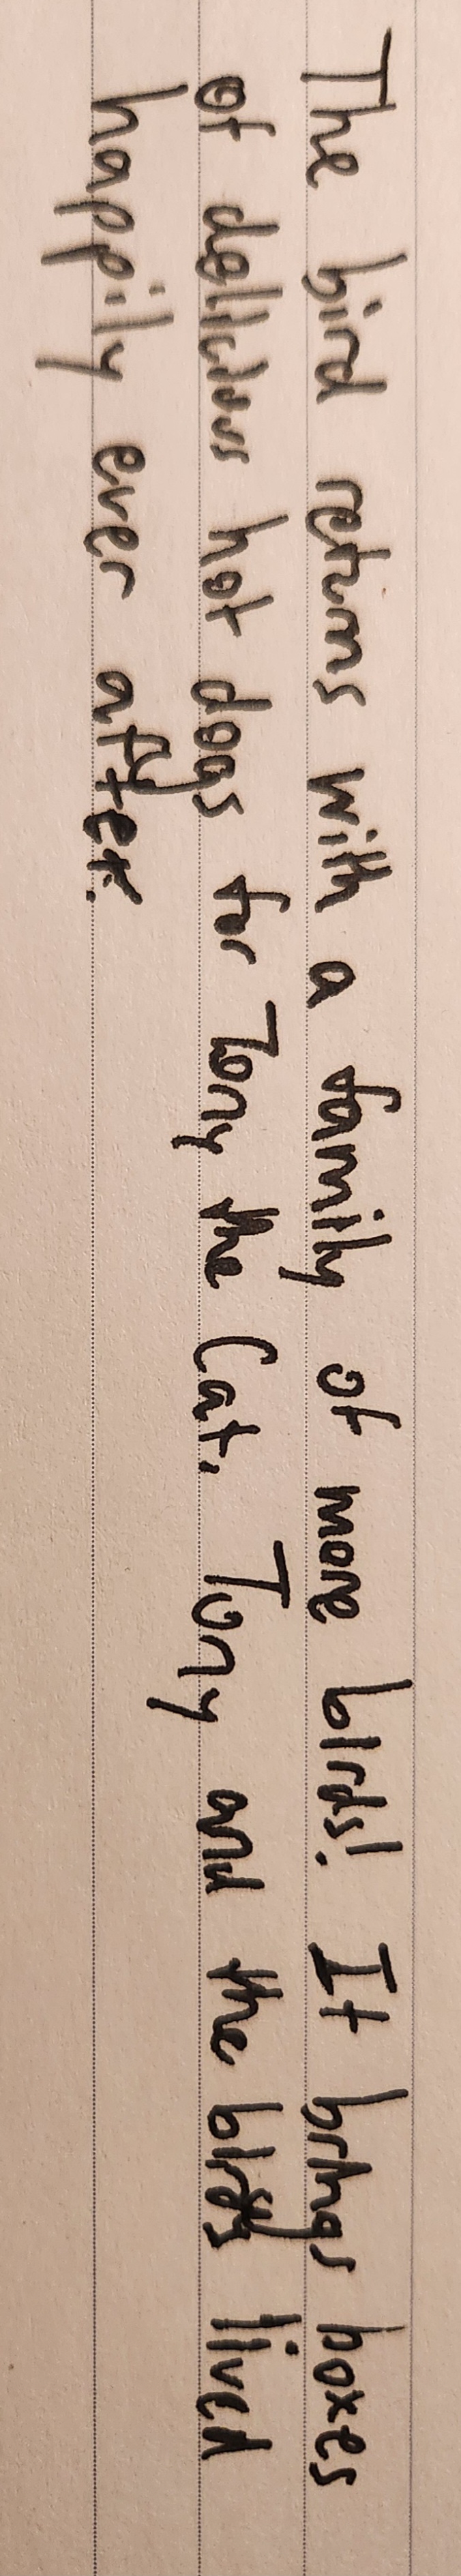 The bird returns with a family of more birds! It brings boxes
of delicious hot dogs for Tony the Cat. Tony and the birds lived
happily ever after.